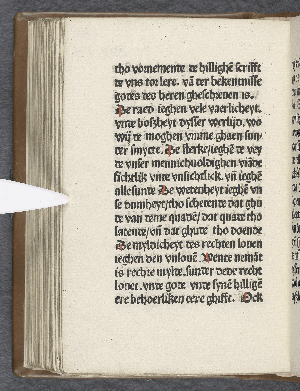 tho vornemente te hillighē scrifft
te vns tor lere. vā ter bekentnisse
gotes tes heren ghescreuen is.
De raed ieghen vele vaerlicheyt.
vnte boszheyt dysser werlijd. wo
wij te moghen vmme ghaen sun
ter smytte. De sterke ieghē te vey
te vnser mennichuoldighen viāde
sichtlik vnte vnsichtlick. vñ ieghē
alle sunte De wetenheyt ieghē vn
se dumheyt/tho schetente dat ghu
te van teme quatē/dat quate tho
latente/vñ dat ghute tho doende
De myldicheyt tes rechten louen
ieghen den vnlouē Wente nemāt
is rechte mylte. sunter dede recht
louet. vnte gote vnte synē hilligē
ere behoerlikē eere ghifft. Ock